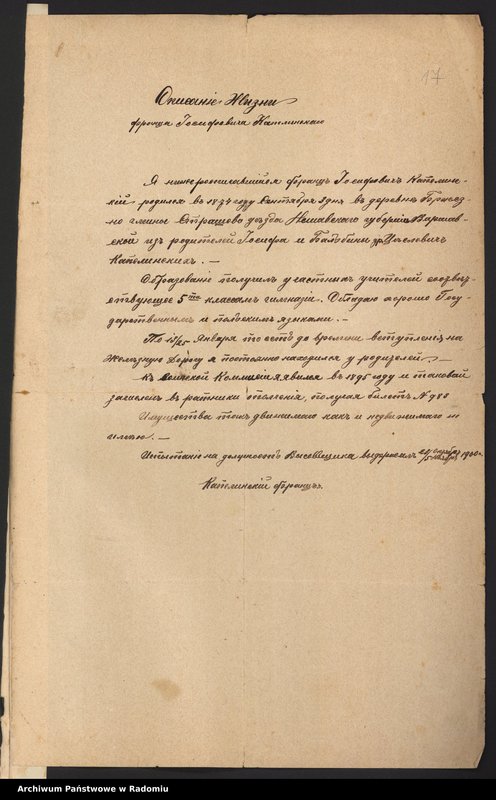 17
Описанiе Жизни
Франца Iосифовича Каплинскаго
Я нижеподписавшiйся Францъ Iосифовичъ Каплинс-
кiй родился въ 1874 году Сентября дня въ деревнѣ
гмины Страшево уѣзда Нешавскаго губернiи Варшав-
ской изъ родителей Iосифа и Бальбины
Каплинскихъ. —
Образованiе получилъ у частныхъ учителей соотвѣт-
ствующее 5ти классамъ гимназiи. Обладаю хорошо Госу-
дарственнымъ и польскимъ языками. —
По 13/25 Января то есть до времени вступленiя на
Желѣзную Дорогу я постоянно находился у родителей. —
Къ Воинской Коммисiи явился въ 1895 году и таковой
зачисленъ въ ратники ополченiя, получая билетъ № 980
Имущества какъ движимаго какъ и недвижимаго не
имѣю. —
Испытанiе на должность Вѣсовщика выдержалъ 1900 г.
Каплинскiй Францъ.
Archiwum Państwowe w Radomiu